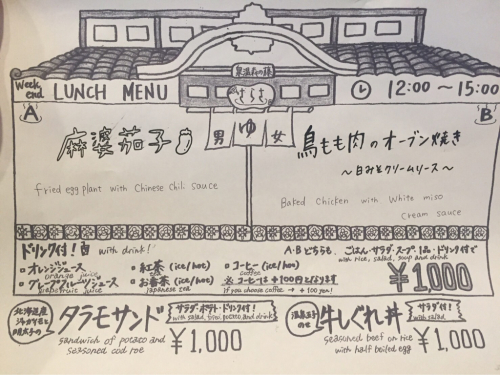 Week end LUNCH MENU
12:00 〜 15:00
A
B
男 ゆ 女
麻婆茄子
fried egg plant with Chinese Chili sauce
鳥もも肉のオーブン焼き
〜白みそクリームソース〜
Baked Chicken with White miso
cream sauce
ドリンク付! with drink!
A・Bどちらも、ごはん・サラダ・スープ・1品・ドリンク付で
with rice, salad, soup and drink
¥1,000
・オレンジジュース
orange juice
・グレープフルーツジュース
grapefruit juice
・紅茶 (ice/hot)
・お番茶 (ice/hot)
japanese tea
・コーヒー (ice/hot)
coffee
※コーヒーは+100円となります
if you choose coffee → + 100 yen!
北海道産
タラモサンド
サラダ・ポテト・ドリンク付!
with salad, fried potato, and drink
sandwich of potato and
seasoned cod roe
¥1,000
温泉玉子のせ
牛しぐれ丼
サラダ付!
with salad
seasoned beef on rice
with half boiled egg
¥1,000